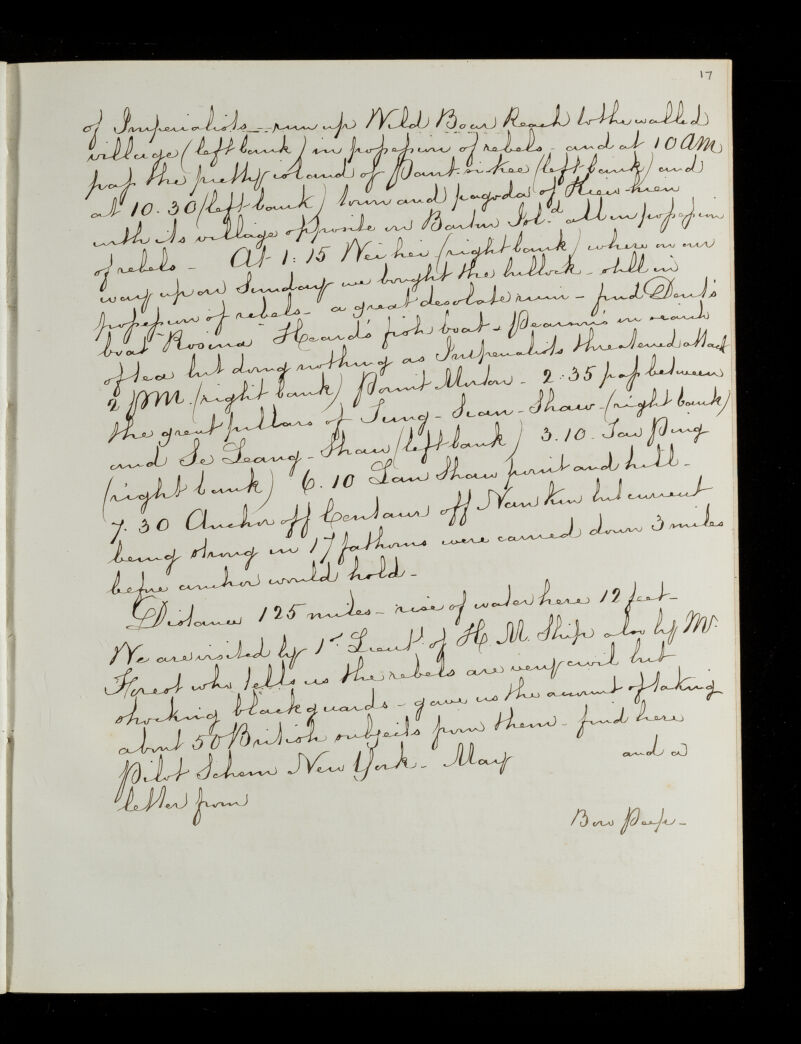 17
of Imperialists - run up Wild Boar Reach to the walled
village (left bank) in possession of rebels - and at 10 AM
pass the pretty island of (left bank) and
at 10.30 (left bank) town and pagoda of Kiew-hien
with its village opposite on Barker Isl.d all in possession
of rebels - At 1:15 Wei hei (right bank) where on our
way up on Sunday we bought the bullock - still in
possession of rebels - a great desolate ruin - find Dent's
boat "Rosina" Heard's fish boat & Pearson's in search
of tea but doing nothing as Imperialists threatened attack
2 PM. (right bank) Point Morton - 2:35 pass between
the great pillars of Tung-Sean-Shaw - (right bank)
and Se Leang-Shaw (left bank) 3.10. Tai Ping
(right bank) 6.10 Lan Shaw point and hill -
7.30 Anchor off Centaur off Nankin but current
being strong in 17 fathoms were carried down 3 miles
before anchor would hold -
Distance 125 miles - rise of water here 12 feet -
We are visited by 1st Lieut.t of H.M. Ship also by Mr.
Forest who tells us the rebels are very civil but
shocking blackguards - gave us the account of taking
about 50 British subjects from them - find here
Pilot Schem New York - May and a
letter from
Bow Peep -